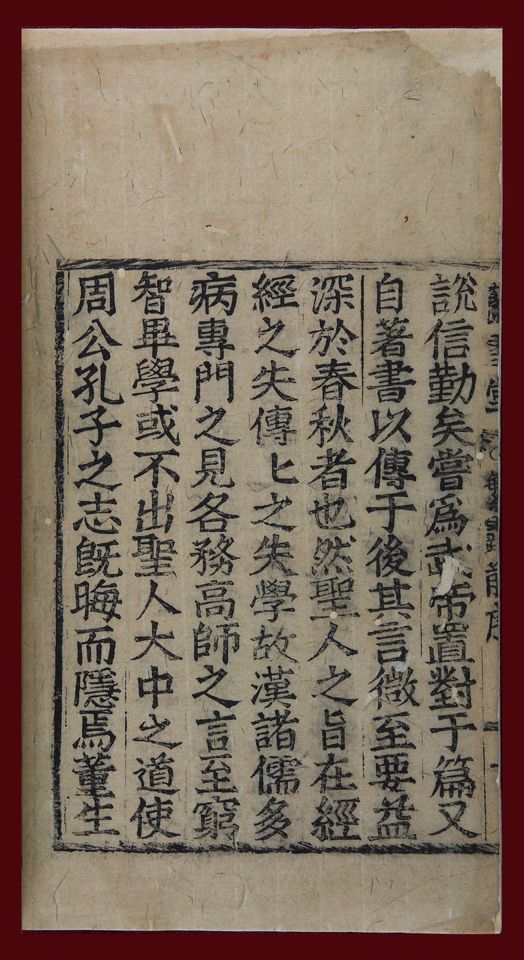 說信勤矣嘗爲武帝置對于篇又
自著書以傳于後其言微至要益
深於春秋者也然聖人之旨在經
經之失傳匕之失學故漢諸儒多
病專門之見各務高師之言至窮
智畢學或不出聖人大中之道使
周公孔子之志旣晦而隱焉董生